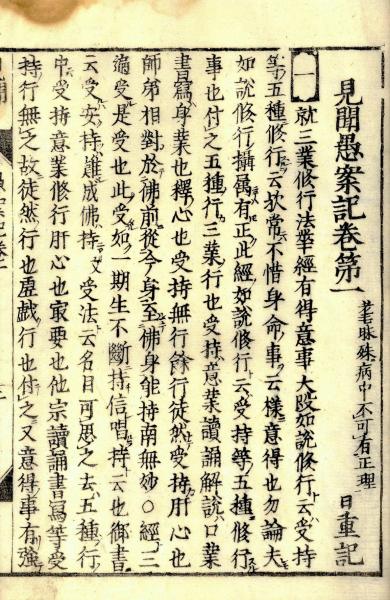 見聞愚案記巻第一
日重記
一就三業修行法華経有得意事大段如説修行云受持
等五種修行云歟常不惜身命事云様意得也勿論夫
如説修行摂属有正此経如説修行云受持等五種修行
事也付之五種行三業行也受持意業読誦解説口業
書写身業也釈心也受持無行余行徒然受持肝心也
師弟相対於佛前従今身至佛身能持南無妙〇経三
遍受是受也此受如一期生不断持信唱持云也御書
云受安持難成佛持受法云名目可思之去五種行
中受持意業修行肝心也最要也他宗読誦書写等受
持行無之故徒然行也虚戯行也付之又意得事有強